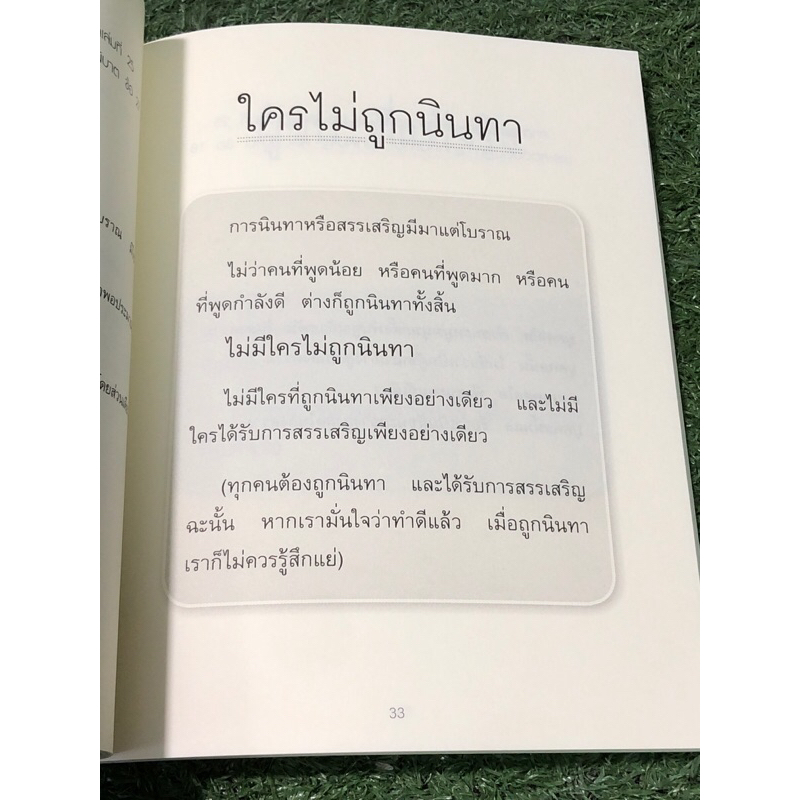 ใครไม่ถูกนินทา
การนินทาหรือสรรเสริญมีมาแต่โบราณ
ไม่ว่าคนที่พูดน้อย หรือคนที่พูดมาก หรือคน
ที่พูดกำลังดี ต่างก็ถูกนินทาทั้งสิ้น
ไม่มีใครไม่ถูกนินทา
ไม่มีใครที่ถูกนินทาเพียงอย่างเดียว และไม่มี
ใครได้รับการสรรเสริญเพียงอย่างเดียว
(ทุกคนต้องถูกนินทา และได้รับการสรรเสริญ
ฉะนั้น หากเรามั่นใจว่าทำดีแล้ว เมื่อถูกนินทา
เราก็ไม่ควรรู้สึกแย่)
33